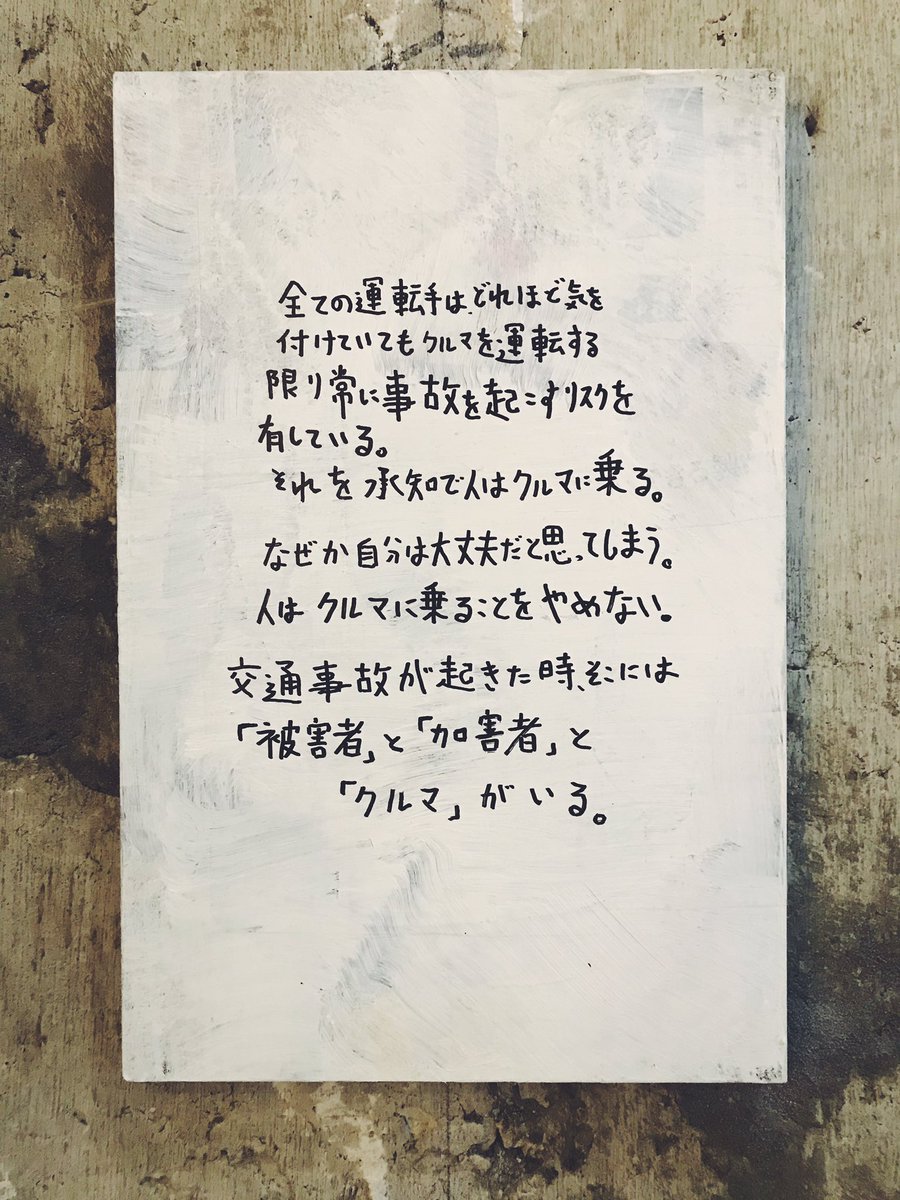 全ての運転手は、どれほど気を
付けていてもクルマを運転する
限り常に事故を起こすリスクを
有している。
それを承知で人はクルマに乗る。
なぜか自分は大丈夫だと思ってしまう。
人はクルマに乗ることをやめない。
交通事故が起きた時、そこには
「被害者」と「加害者」と
「クルマ」がいる。